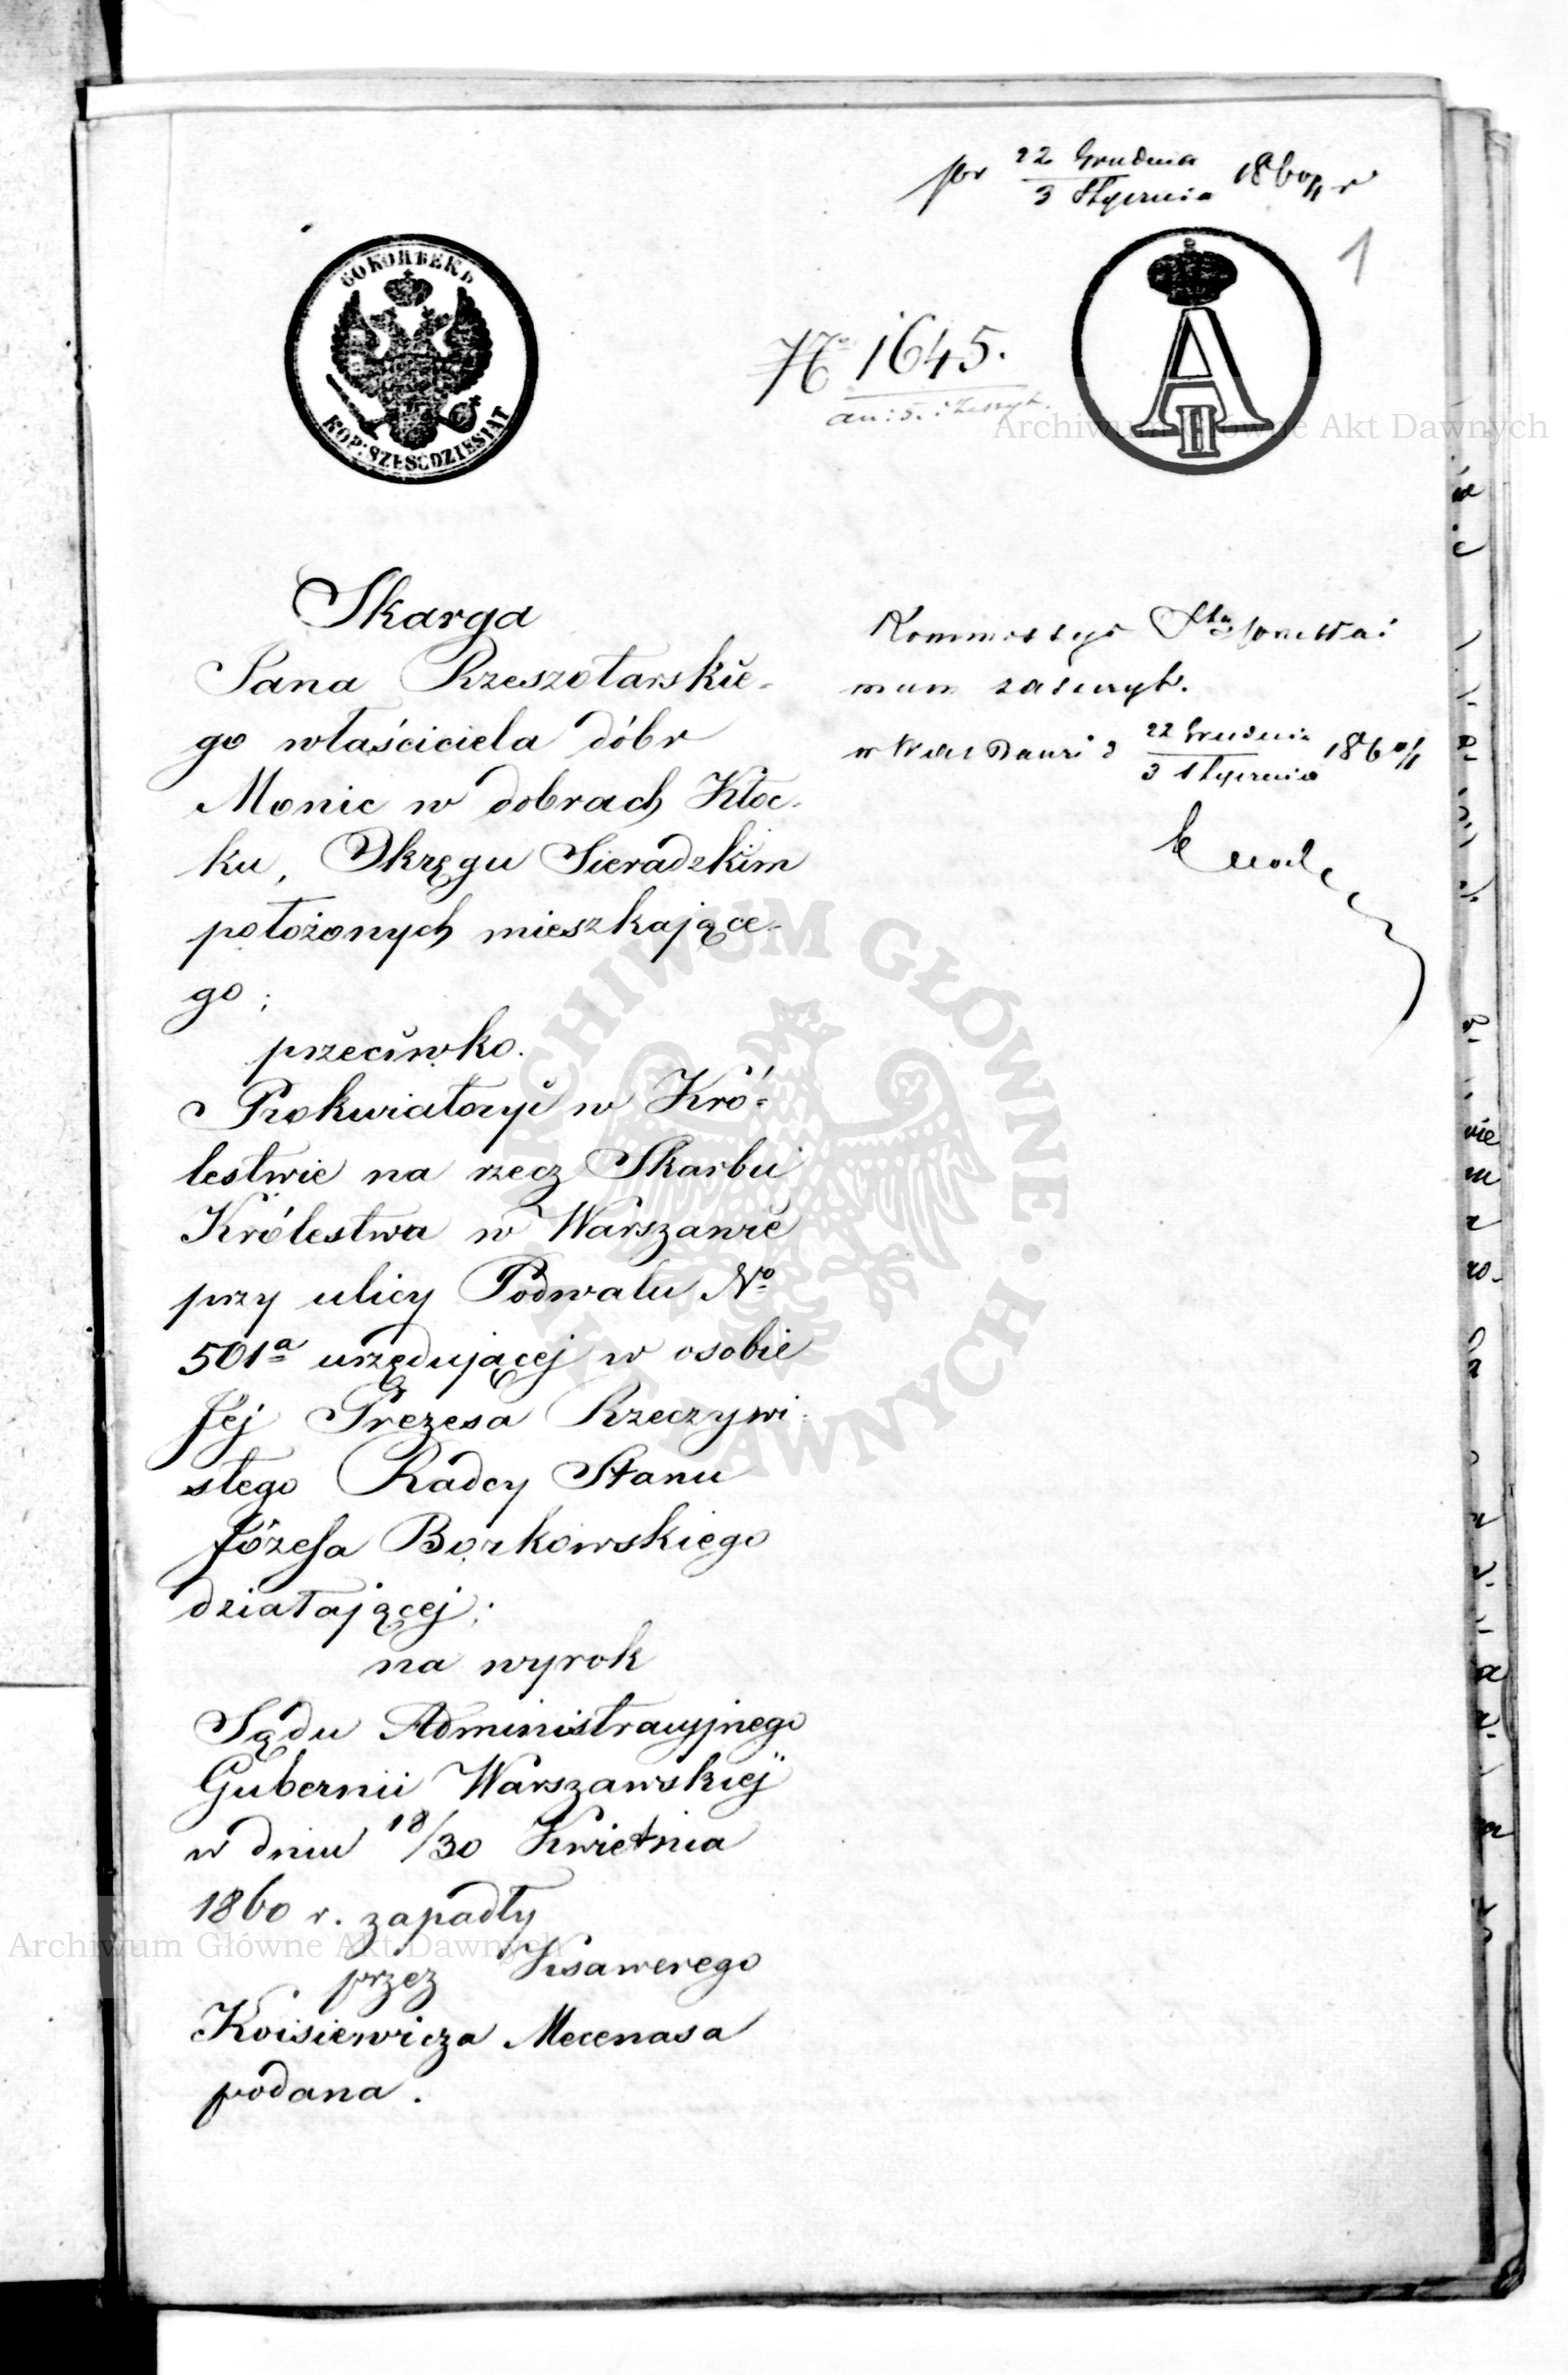 22 Grudnia
3 Stycznia 1860/1 r
1
60 КОПѢЕКЪ
KOP: SZEŚĆDZIESIĄT
A II
No 1645.
Archiwum Główne Akt Dawnych
Skarga
Jana Rzeszotarskie-
go właściciela dóbr
Monic w dobrach Kłoc-
ku, Okręgu Sieradzkim
położonych mieszkające-
go;
przeciwko.
Prokuratoryi w Kró-
lestwie na rzecz Skarbu
Królestwa w Warszawie
przy ulicy Podwalu No
501a urzędującej w osobie
Jej Prezesa Rzeczywi-
stego Radcy Stanu
Józefa Borkowskiego
działającej;
na wyrok
Sądu Administracyjnego
Gubernii Warszawskiej
w dniu 18/30 Kwietnia
1860 r. zapadły
przez Ksawerego
Koisiewicza Mecenasa
podana.
mam zaszczyt.
22 Grudnia
3 Stycznia 1860/1
ARCHIWUM GŁÓWNE AKT DAWNYCH
Archiwum Główne Akt Dawnych